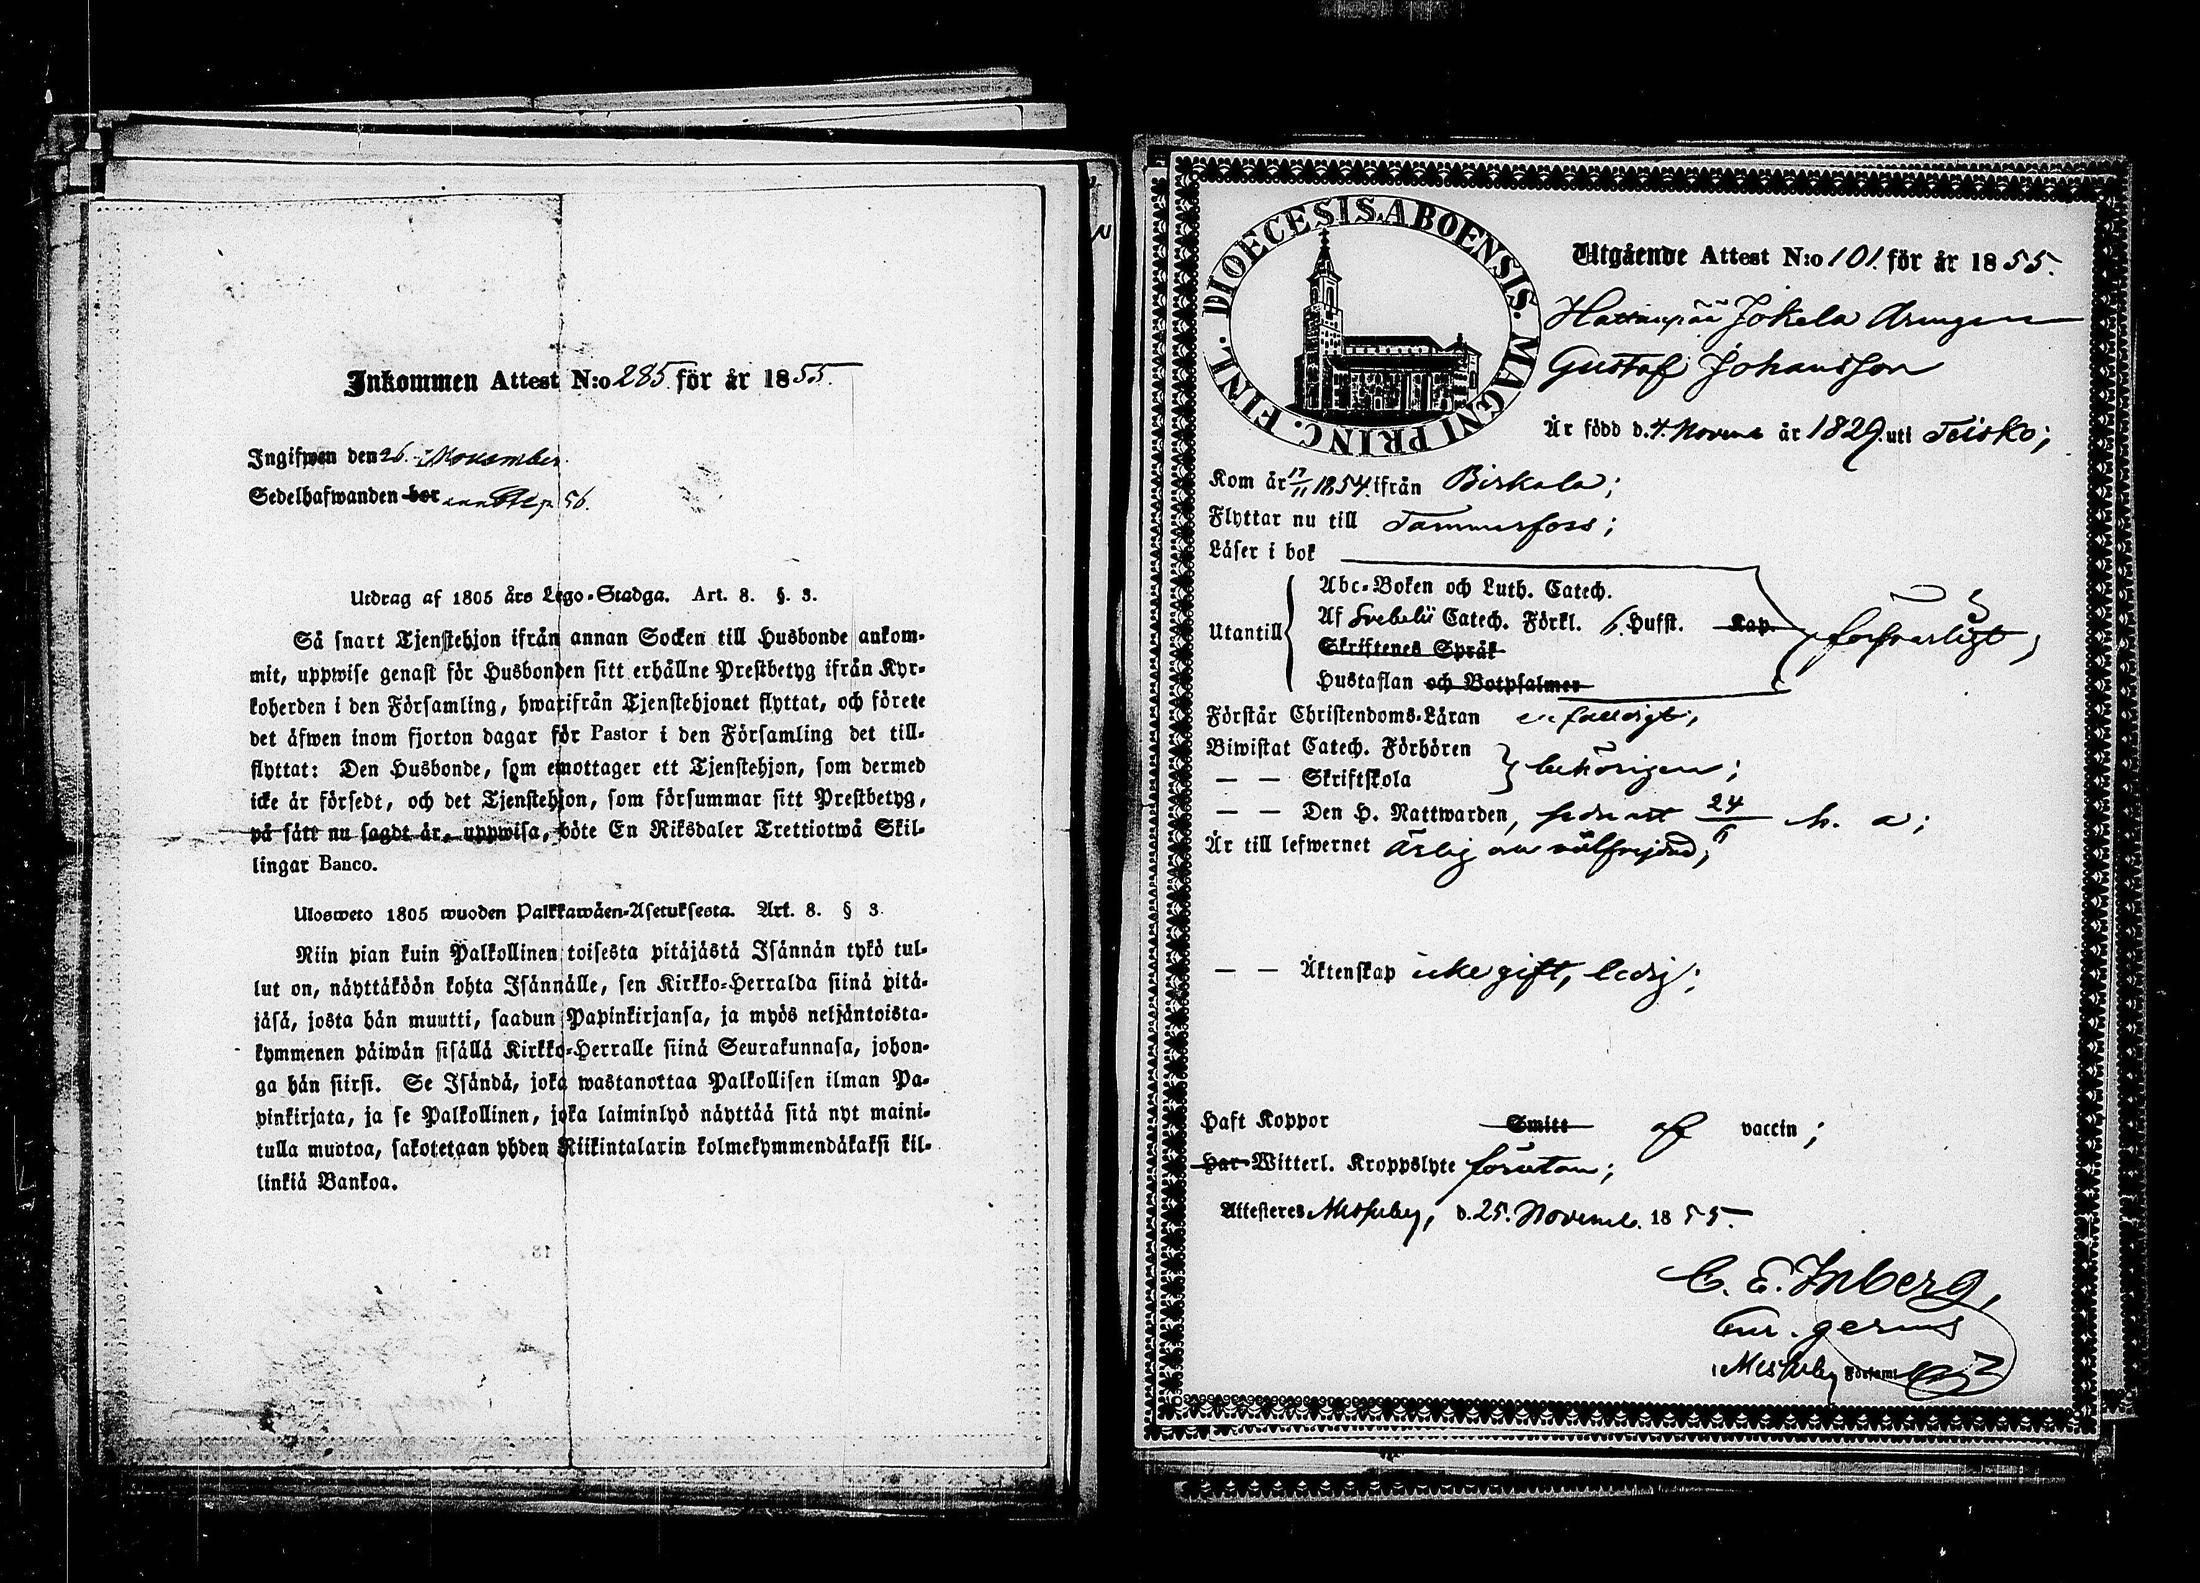 Inkommen Attest N:o 285 för år 1855.
Ingifwen den 26. November
Sedelhafwanden bor 56.
Utdrag af 1805 års Lego-Stadga. Art. 8. §. 3.
Så snart Tjenstehjon ifrån annan Socken till Husbonde ankom-
mit, uppwise genast för Husbonden sitt erhållne Prestbetyg ifrån Kyr-
koherden i den Församling, hwarifrån Tjenstehjonet flyttat, och förete
det äfwen inom fjorton dagar för Pastor i den Församling det till-
flyttat: Den Husbonde, som emottager ett Tjenstehjon, som dermed
icke är försedt, och det Tjenstehjon, som försummar sitt Prestbetyg,
på sätt nu sagdt är, uppwisa, böte En Riksdaler Trettiotwå Skil-
lingar Banco.
Ulosweto 1805 wuoden Palkkawäen-Asetuksesta. Art. 8. § 3.
Niin pian kuin Palkollinen toisesta pitäjästä Isännän tykö tul-
lut on, näyttäköön kohta Isännälle, sen Kirkko-Herralda siinä pitä-
jäsä, josta hän muutti, saadun Papinkirjansa, ja myös neljäntoista-
kymmenen päiwän sisällä Kirkko-Herralle siinä Seurakunnasa, johon-
ga hän siirsi. Se Isändä, joka wastanottaa Palkollisen ilman Pa-
pinkirjata, ja se Palkollinen, joka laiminlyö näyttää sitä nyt maini-
tulla muotoa, sakotetaan yhden Riikintalarin kolmekymmendäkaksi kil-
linkiä Bankoa.
DIOECESIS. ABOENSIS. MAGNI PRINC. FINL.
Utgående Attest N:o 101. för år 1855.
Hattanpää Jokela Drengen
Gustaf Johansson
Är född d. 4. Novemb år 1829. uti Teisko;
Kom år 17/11 1854. ifrån Birkala;
Flyttar nu till Tammerfors;
Läser i bok
Utantill
Abc-Boken och Luth. Catech.
Af Svebelii Catech. Förkl. 6. Hufst. Kap.
Skriftenes Språk
Hustaflan och Botpsalmer
försvarligt;
Förstår Christendoms-Läran enfaldigt;
Biwistat Catech. Förhören
— — Skriftskola
behörigen;
— — Den H. Nattwarden, sednast 24/6 h. a;
Är till lefwernet ärlig och välfrejdad;
— — Äktenskap icke gift, ledig;
Haft Koppor Smitt af vaccin;
Har Witterl. Kroppslyte förutan;
Attesteras Messuby, d. 25. Novemb. 1855.
C. E. Inberg,
Cur. gerens
i Messuby Församl